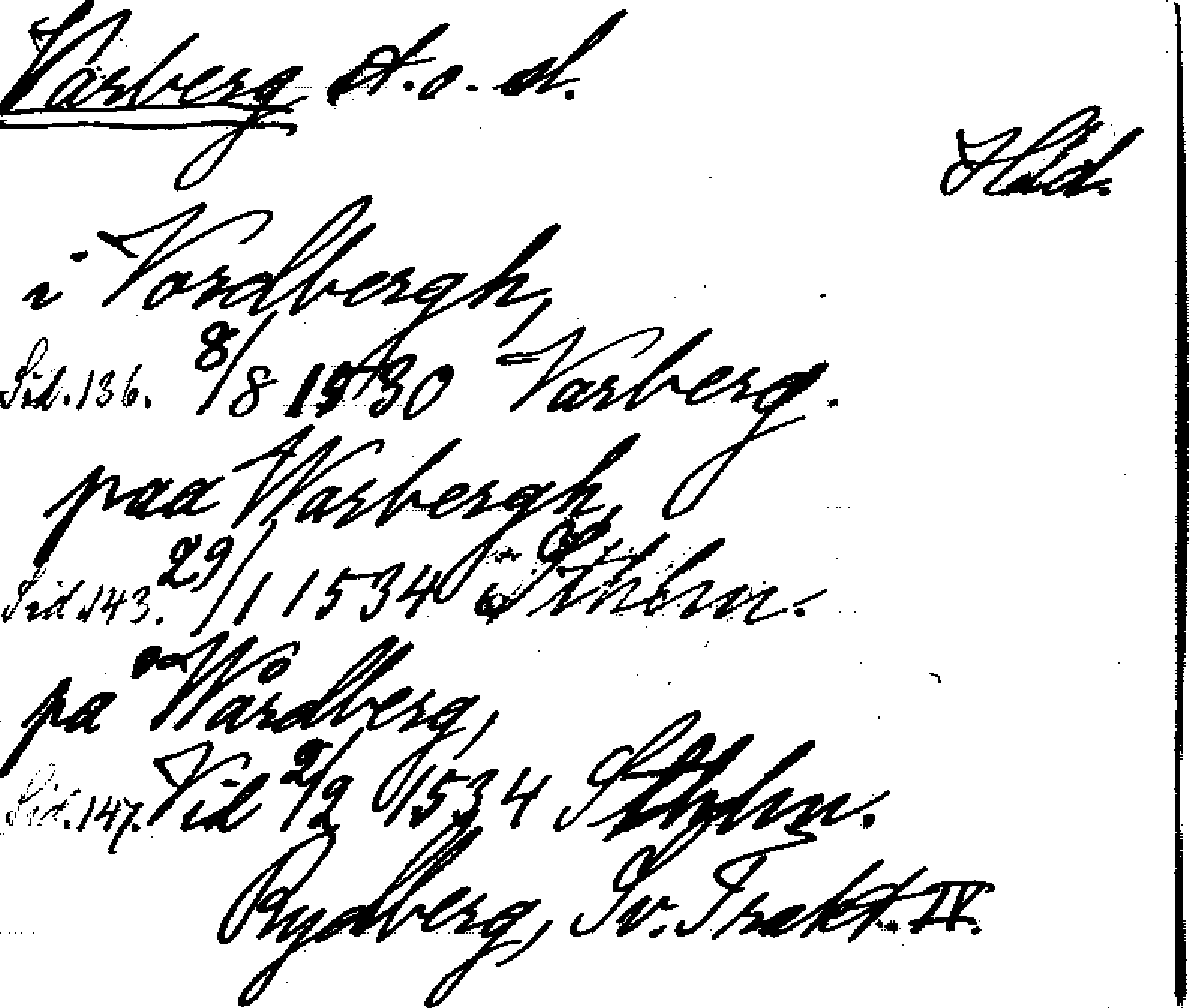 Varberg st. o. sl.
Hld.
i Vordbergh,
Sid. 136. 8/8 1530 Varberg.
paa Warbergh,
Sid. 143. 29/1 1534 Sthlm.
på Wårdberg,
Sid. 147. Vid 2/2 1534 Sthlm.
Rydberg, Sv. Trakt. IV.